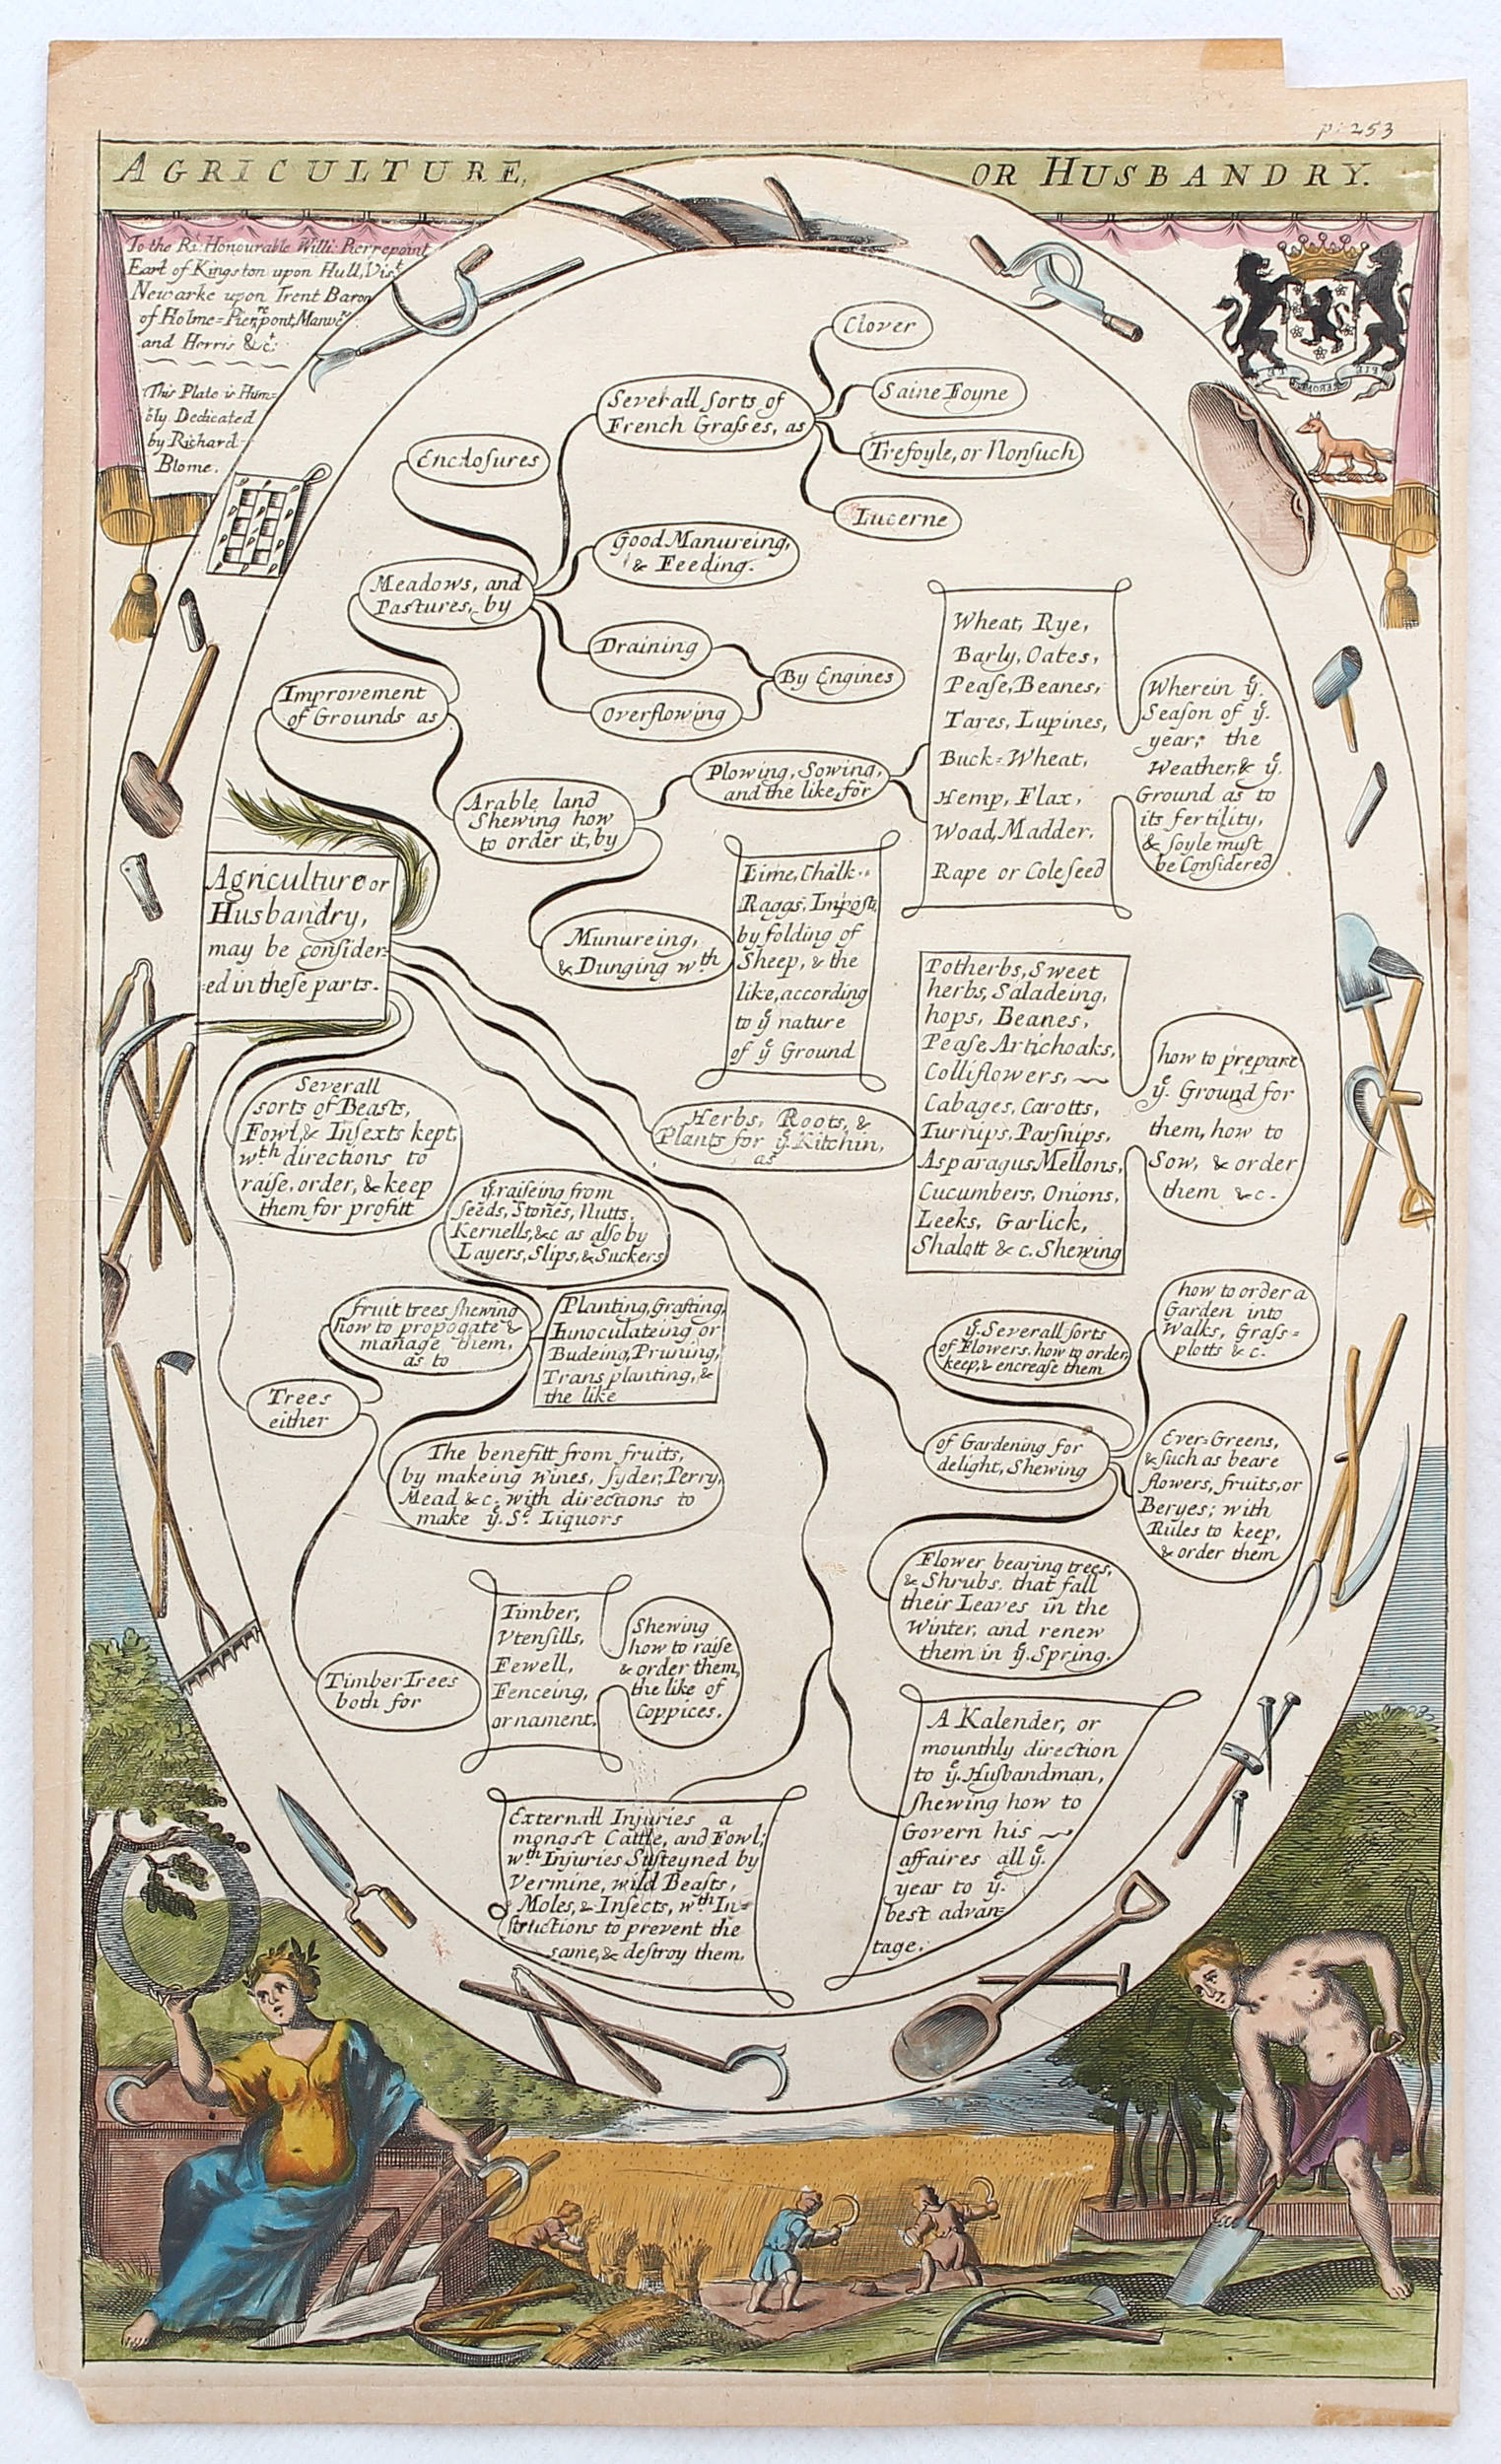 p: 253
AGRICULTURE, OR HUSBANDRY.
To the Rt. Honourable Willi: Pierrepoint
Earl of Kingston upon Hull, Vist.
Newarke upon Trent Baron
of Holme=Pierpont, Manvers
and Herris &c:
This Plate is Hum=
bly Dedicated
by Richard
Blome.
Clover
Severall sorts of
French Grasses, as
Saine Foyne
Trefoyle, or Nonsuch
Lucerne
Enclosures
Good Manureing,
& Feeding.
Meadows, and
Pastures, by
Draining
By Engines
Overflowing
Improvement
of Grounds as
Wheat, Rye,
Barly, Oates,
Pease, Beanes,
Tares, Lupines,
Buck=Wheat,
Hemp, Flax,
Woad, Madder,
Rape or Coleseed
Wherein ye.
Season of ye.
year; the
Weather, & ye.
Ground as to
its fertility,
& soyle must
be Considered
Plowing, Sowing,
and the like, for
Arable land
Shewing how
to order it, by
Munureing,
& Dunging wth
Lime, Chalk
Raggs, Impost,
by folding of
Sheep, & the
like, according
to ye nature
of ye Ground
Agriculture or
Husbandry,
may be consider=
ed in these parts.
Potherbs, Sweet
herbs, Saladeing,
hops, Beanes,
Pease Artichoaks,
Colliflowers,
Cabages, Carotts,
Turnips, Parsnips,
Asparagus, Mellons,
Cucumbers, Onions,
Leeks, Garlick,
Shalott & c. Shewing
how to prepare
ye. Ground for
them, how to
Sow, & order
them &c.
Herbs, Roots, &
Plants for ye. Kitchin,
as
Severall
sorts of Beasts,
Fowl, & Insexts kept,
wth directions to
raise, order, & keep
them for profitt
ye. raiseing from
seeds, Stones, Nutts,
Kernells, &c as also by
Layers, Slips, & Suckers
fruit trees shewing
how to propogate &
manage them,
as to
Planting, Grafting,
Innoculateing or
Budeing, Pruning,
Transplanting, &
the like
Trees
either
The benefitt from fruits,
by makeing wines, syder, Perry,
Mead &c; with directions to
make ye. Sd. Liquors
how to order a
Garden into
Walks, Grass=
plotts &c.
ye. Severall sorts
of Flowers, how to order,
keep, & encrease them
of Gardening for
delight, Shewing
Ever=Greens,
& such as beare
flowers, fruits, or
Beryes; with
Rules to keep,
& order them
Flower bearing trees,
& Shrubs, that fall
their Leaves in the
Winter, and renew
them in ye. Spring.
Timber Trees
both for
Timber,
Vtensills,
Fewell,
Fenceing,
ornament.
Shewing
how to raise
& order them,
the like of
Coppices.
Externall Injuries a
mongst Cattle, and Fowl;
wth Injuries Susteyned by
Vermine, wild Beasts,
Moles, & Insects, wth In=
structions to prevent the
same, & destroy them.
A Kalender, or
mounthly direction
to ye. Husbandman,
shewing how to
Govern his
affaires all ye.
year to ye.
best advan=
tage.